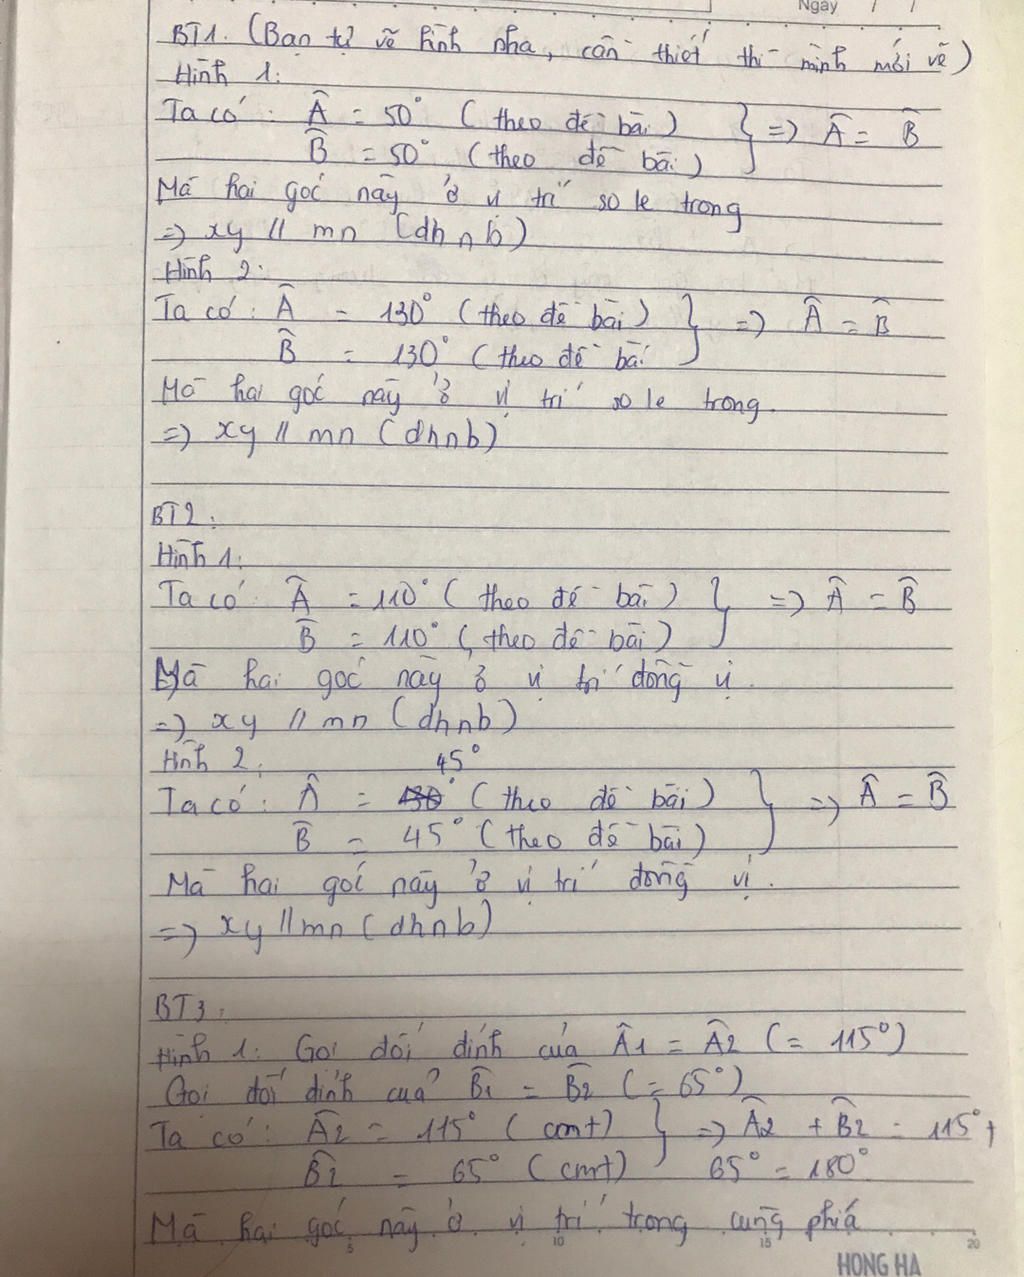 Ngày / /
BT1. (Bạn tự vẽ hình nha, cần thiết thì mình mới vẽ)
Hình 1:
Ta có: Â = 50° (theo đề bài) } => Â = B̂
B̂ = 50° (theo đề bài)
Mà hai góc này ở vị trí so le trong
=> xy // mn (dhnb)
Hình 2:
Ta có: Â = 130° (theo đề bài) } => Â = B̂
B̂ = 130° (theo đề bài
Mà hai góc này ở vị trí so le trong.
=> xy // mn (dhnb)
BT2:
Hình 1:
Ta có Â = 110° (theo đề bài) } => Â = B̂
B̂ = 110° (theo đề bài)
Mà hai góc này ở vị trí đồng vị.
=> xy // mn (dhnb)
Hình 2: 45°
Ta có: Â = ° (theo đề bài) } => Â = B̂
B̂ = 45° (theo đề bài)
Mà hai góc này ở vị trí đồng vị.
=> xy // mn (dhnb)
BT3:
Hình 1: Gọi đối đỉnh của Â1 = Â2 (= 115°)
Gọi đối đỉnh của B̂1 = B̂2 (= 65°)
Ta có: Â2 = 115° (cmt) } => Â2 + B̂2 = 115° +
B̂2 = 65° (cmt) 65° = 180°
Mà hai góc này ở vị trí trong cùng phía
5 10 15 20
HONG HA